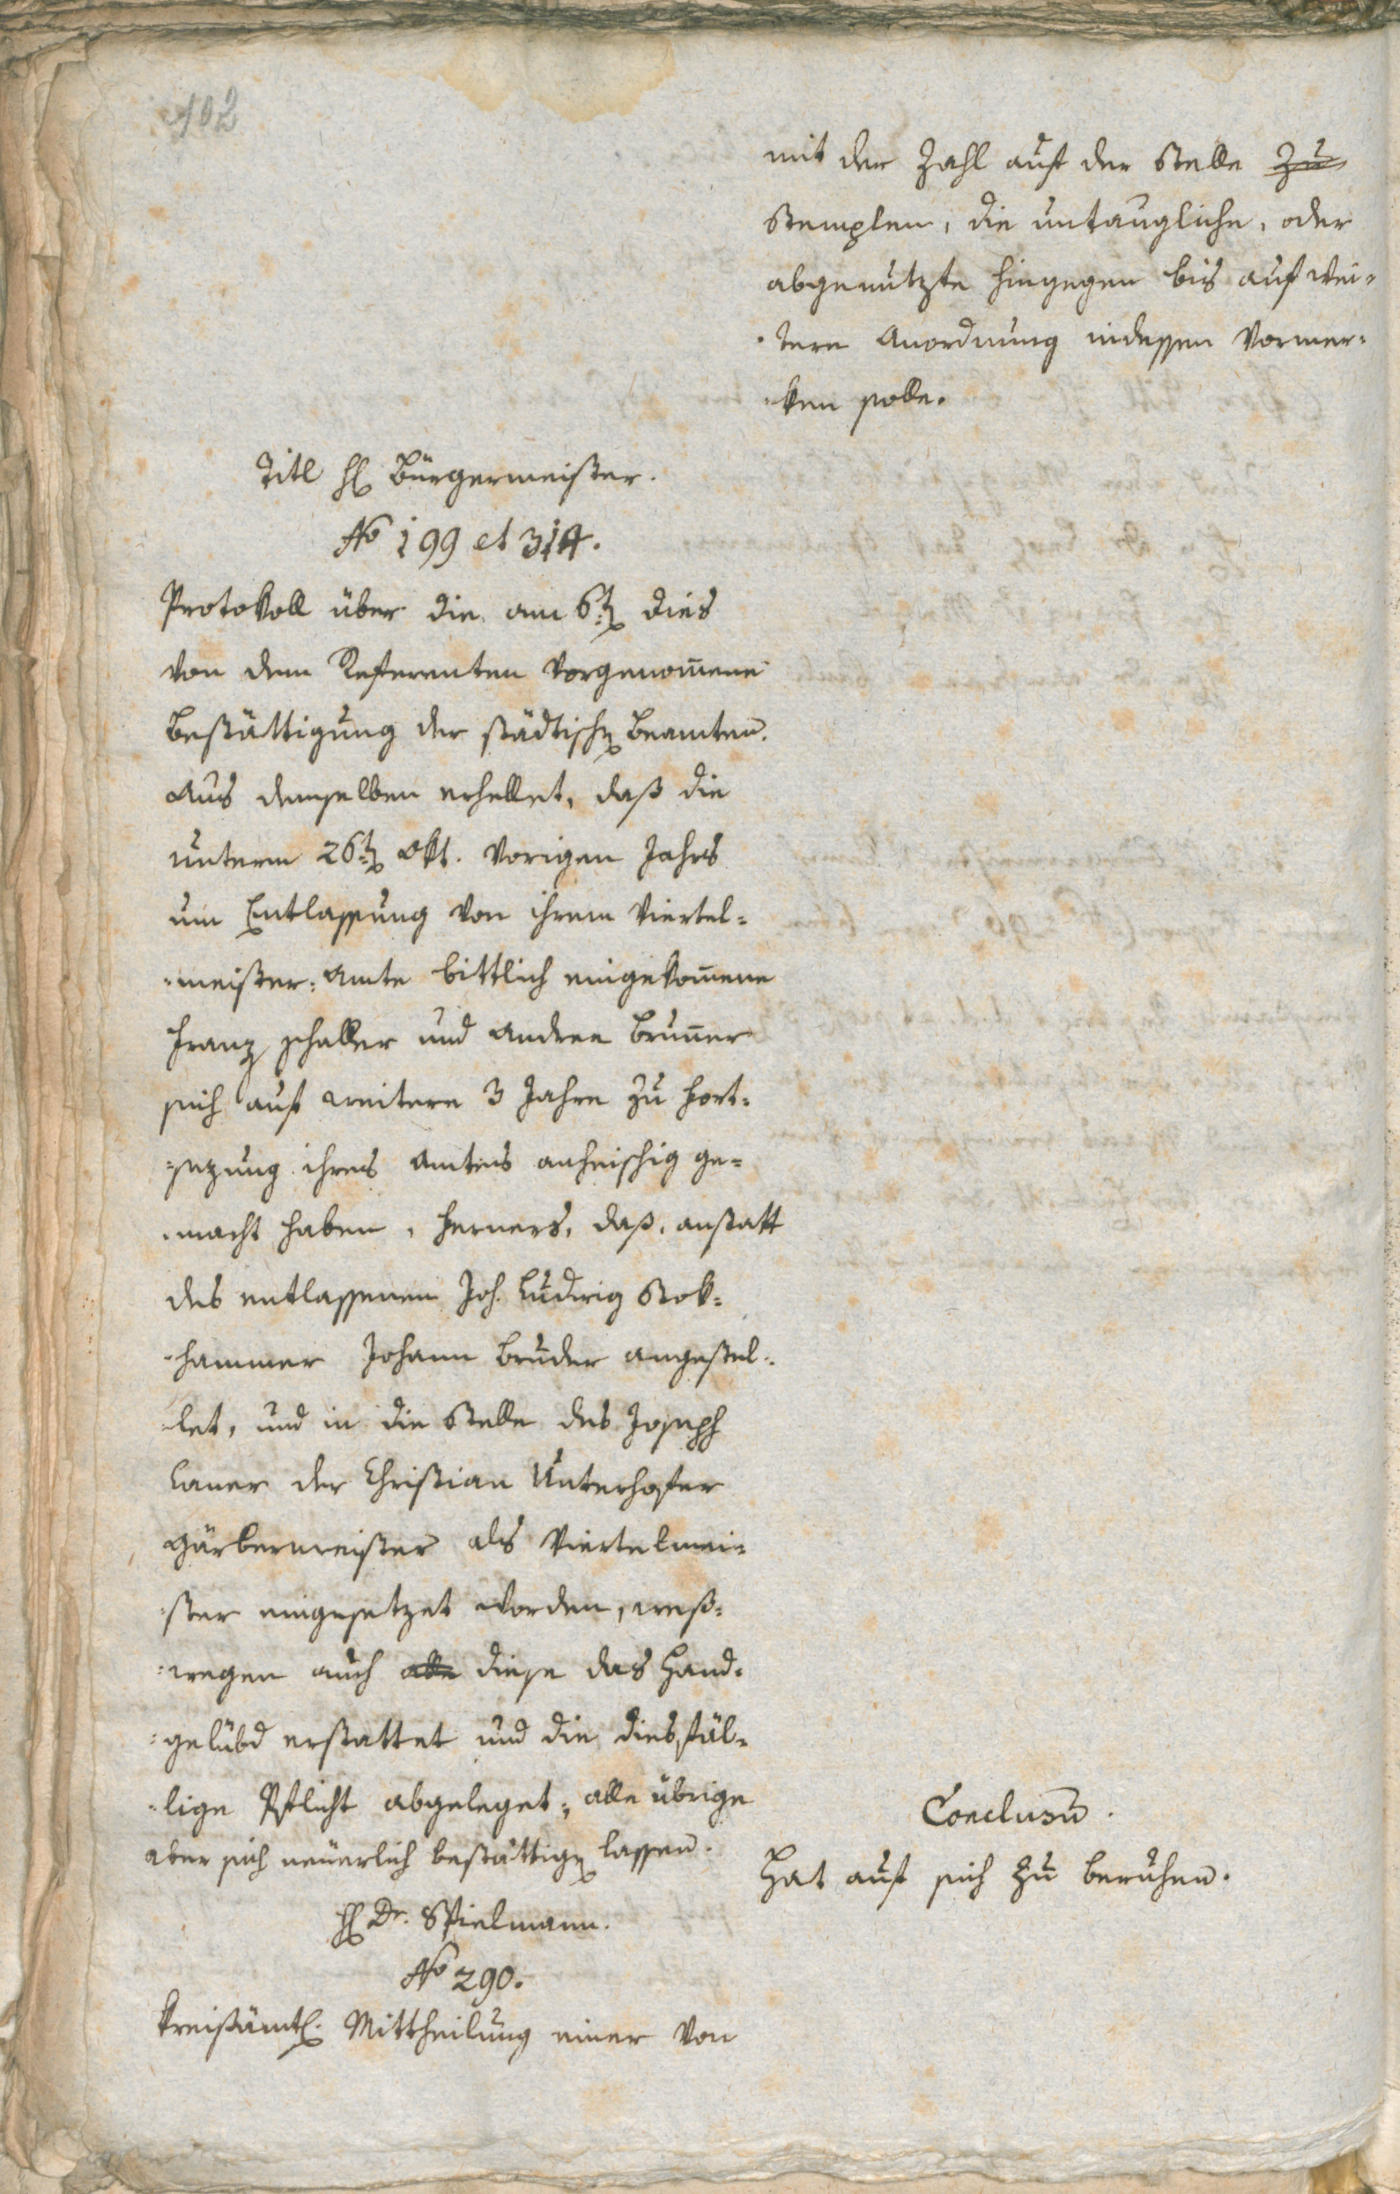 102
mit der Zahl auf der Stelle zu
Stemplen, die untaugliche, oder
abgenutzte hingegen bis auf wei-
tere Anordnung indessen Vormer-
ken solle.
Titl H. Bürgermeister.
No 199 et 314.
Protokoll über die am 6t dies
von dem Referenten vorgenomene
Bestättigung der städtisch Beamten.
Aus demselben erhellet, daß die
unterm 26t Okt. vorigen Jahrs
um Entlassung von ihrem Viertel-
meister-Amte bittlich eingekomene
Franz Schaller und Andree Bruner
sich auf weitere 3 Jahre zu Fort-
sezung ihres Amtes anheischig ge-
macht haben, ferners, daß, anstatt
des entlassenen Joh. Ludwig Stok-
hammer Johann Bruder angestel-
let, und in die Stelle des Joseph
Laner der Christian Unterhofer
Gärbermeister als Viertelmei-
ster eingesetzet worden, weß-
wegen auch alle diese das Hand-
gelübd erstattet und die diesfäl-
lige Pflicht abgeleget; alle übrige
aber sich neüerlich bestättig lassen.
Conclusu.
Hat auf sich zu beruhen.
H. Dr. Spielmann.
No 290.
Kreisämtl. Mittheilung einer von